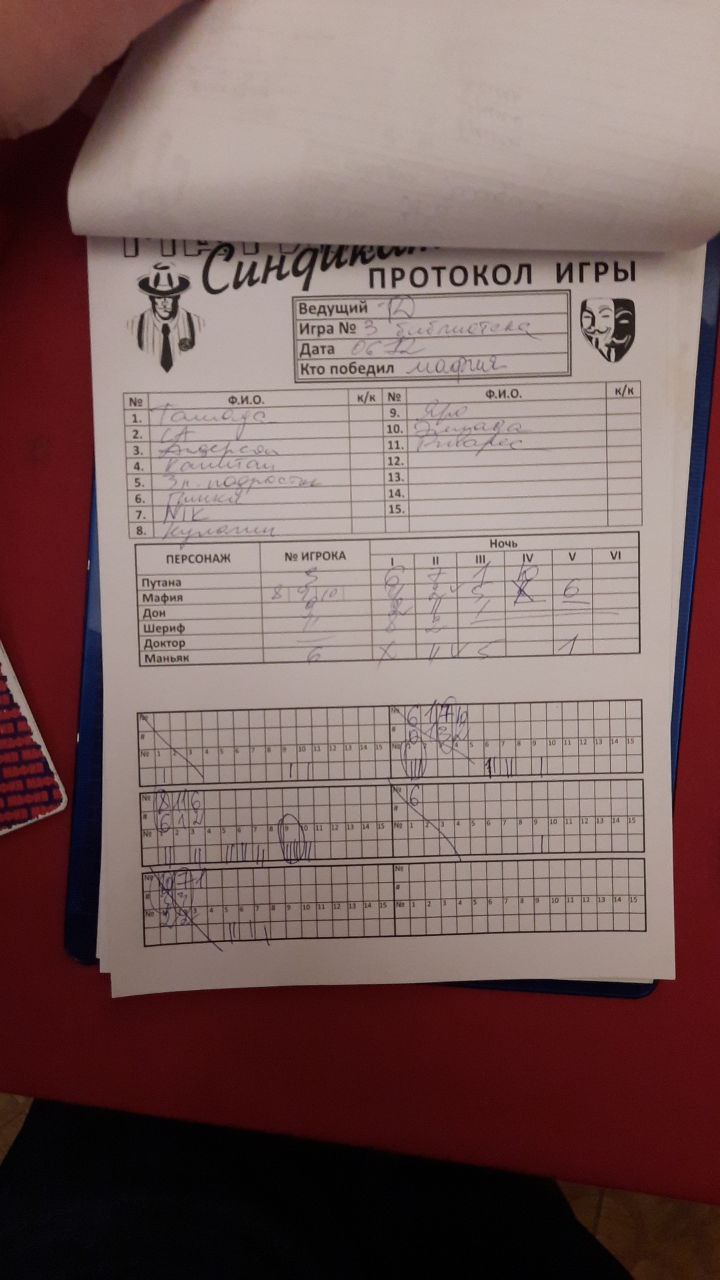 Синдикат
ПРОТОКОЛ ИГРЫ
Ведущий
Игра № 3 библиотека
Дата 06 12
Кто победил мафия
№ Ф.И.О. к/к № Ф.И.О. к/к
1. 9. Яро
2. СА 10.
3. Андерсен 11. Риварес
4. Капитан 12.
5. Зл. подросток 13.
6. Пинки 14.
7. NIK 15.
8. Кулагин
ПЕРСОНАЖ № ИГРОКА Ночь
I II III IV V VI
Путана 5 6 7 1 10
Мафия 8 9 10 5 6
Дон 9 11 1
Шериф 11 8 2
Доктор
Маньяк 6 X 11 5 1
№ № 6 1 7 10
# # 1 3 2
№ 1 2 3 4 5 6 7 8 9 10 11 12 13 14 15 № 1 2 3 4 5 6 7 8 9 10 11 12 13 14 15
№ 8 11 6 № 6
# 6 1 2 #
№ 1 2 3 4 5 6 7 8 9 10 11 12 13 14 15 № 1 2 3 4 5 6 7 8 9 10 11 12 13 14 15
№ 10 7 1 №
# #
№ 1 2 3 4 5 6 7 8 9 10 11 12 13 14 15 № 1 2 3 4 5 6 7 8 9 10 11 12 13 14 15